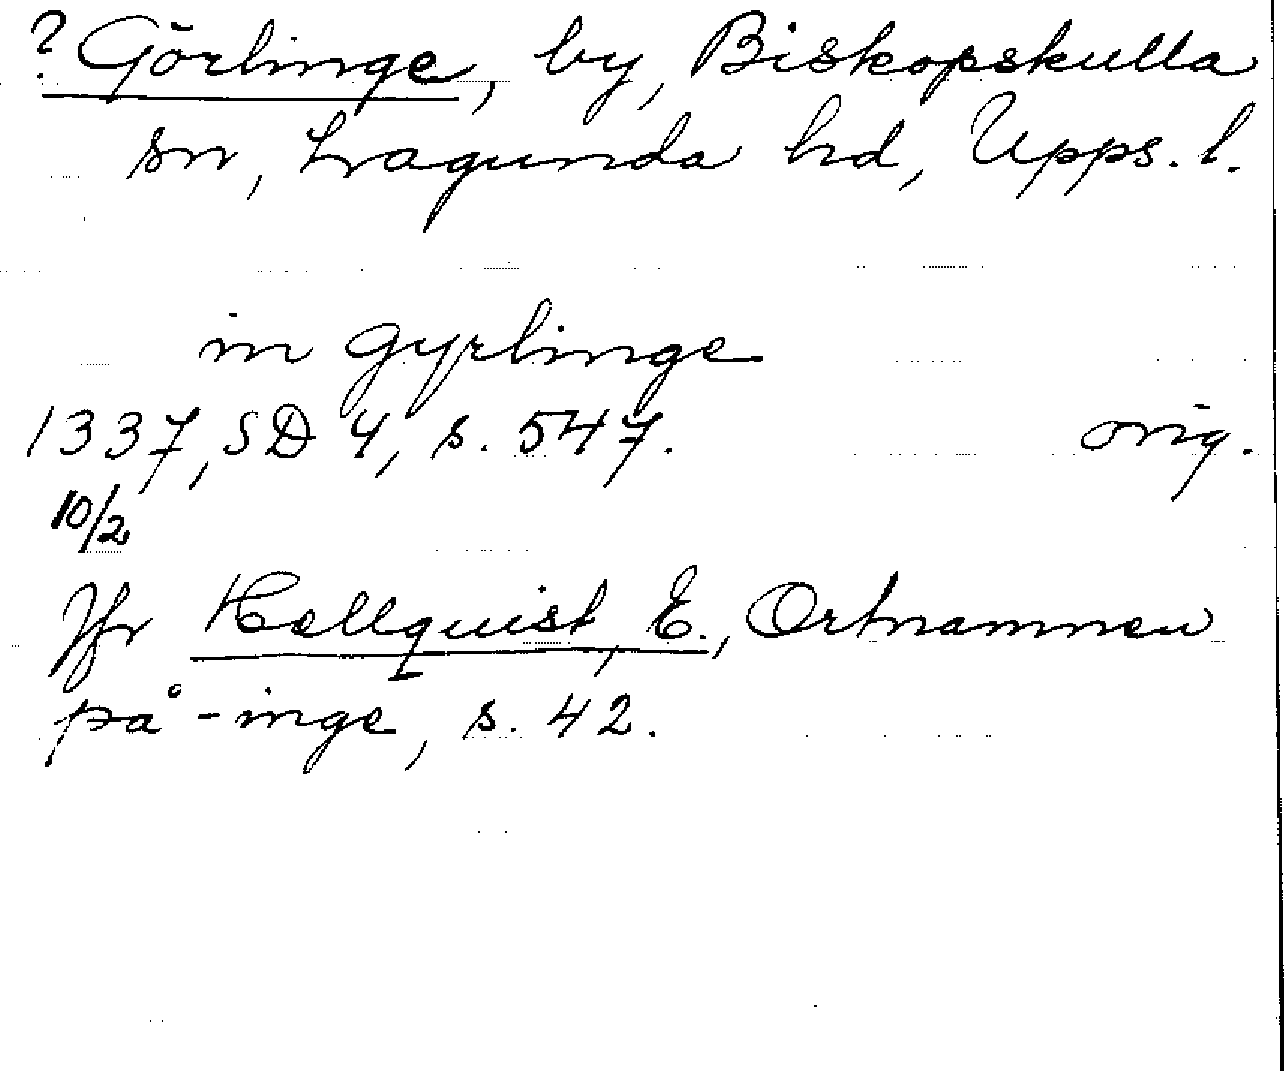 ? Görlinge, by, Biskopskulla
sn, Lagunda hd, Upps. l.
in gyrlinge
1337, SD 4, s. 547. orig.
10/2
Jfr Hellquist, E., Ortnamnen
på -inge, s. 42.